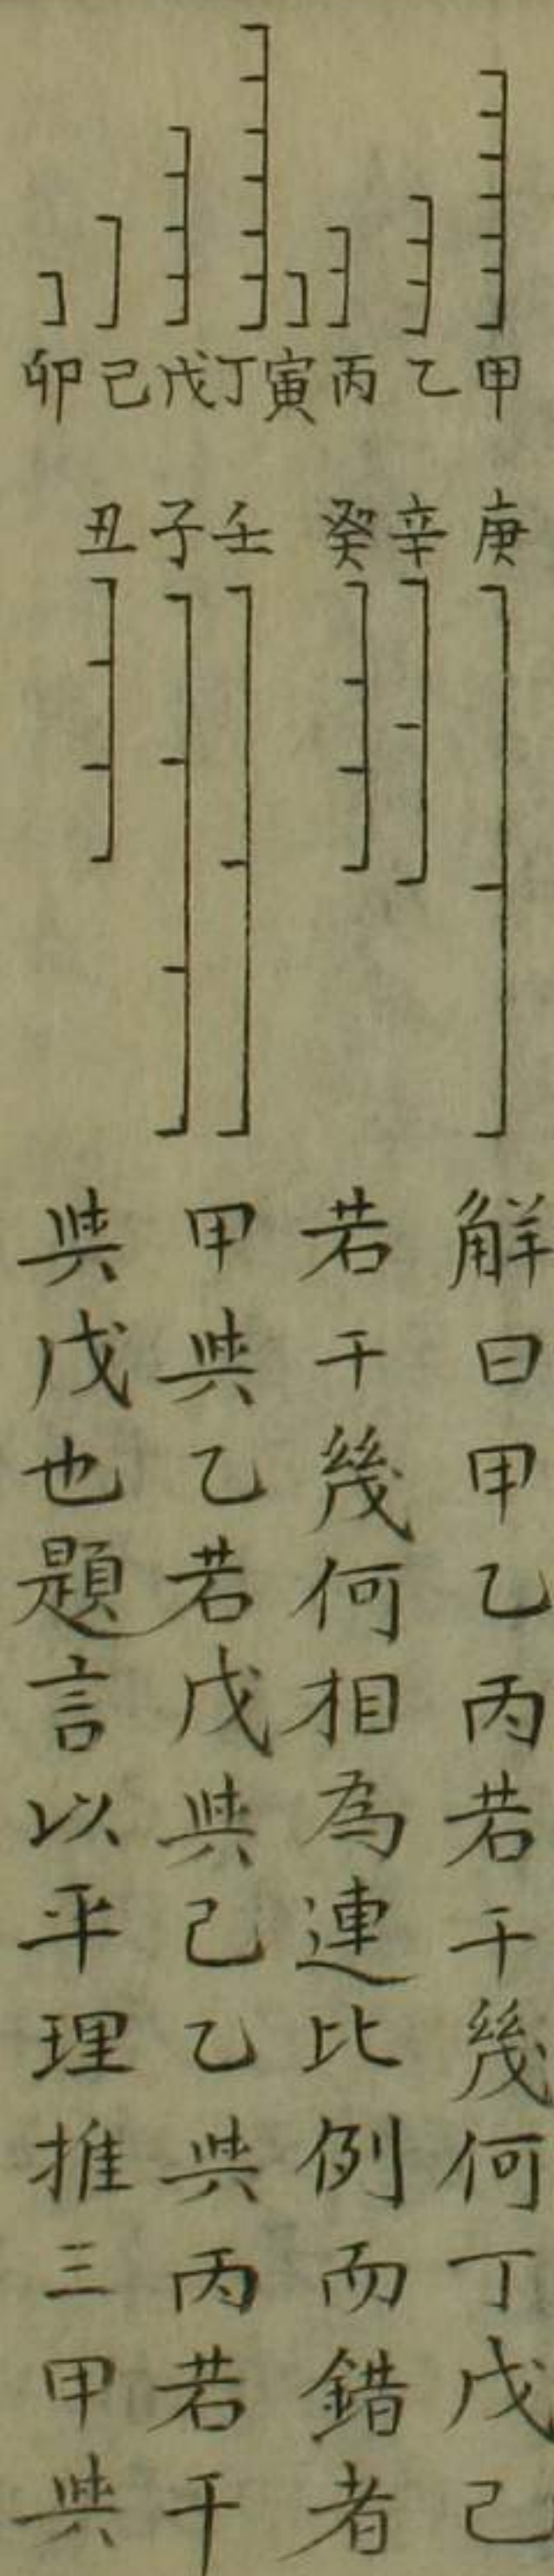 甲乙丙寅丁戊己卯
庚辛癸壬子丑
解曰甲乙丙若干幾何丁戊己
若干幾何相為連比例而錯者
甲與乙若戊與己乙與丙若干
與戊也題言以平理推三甲與